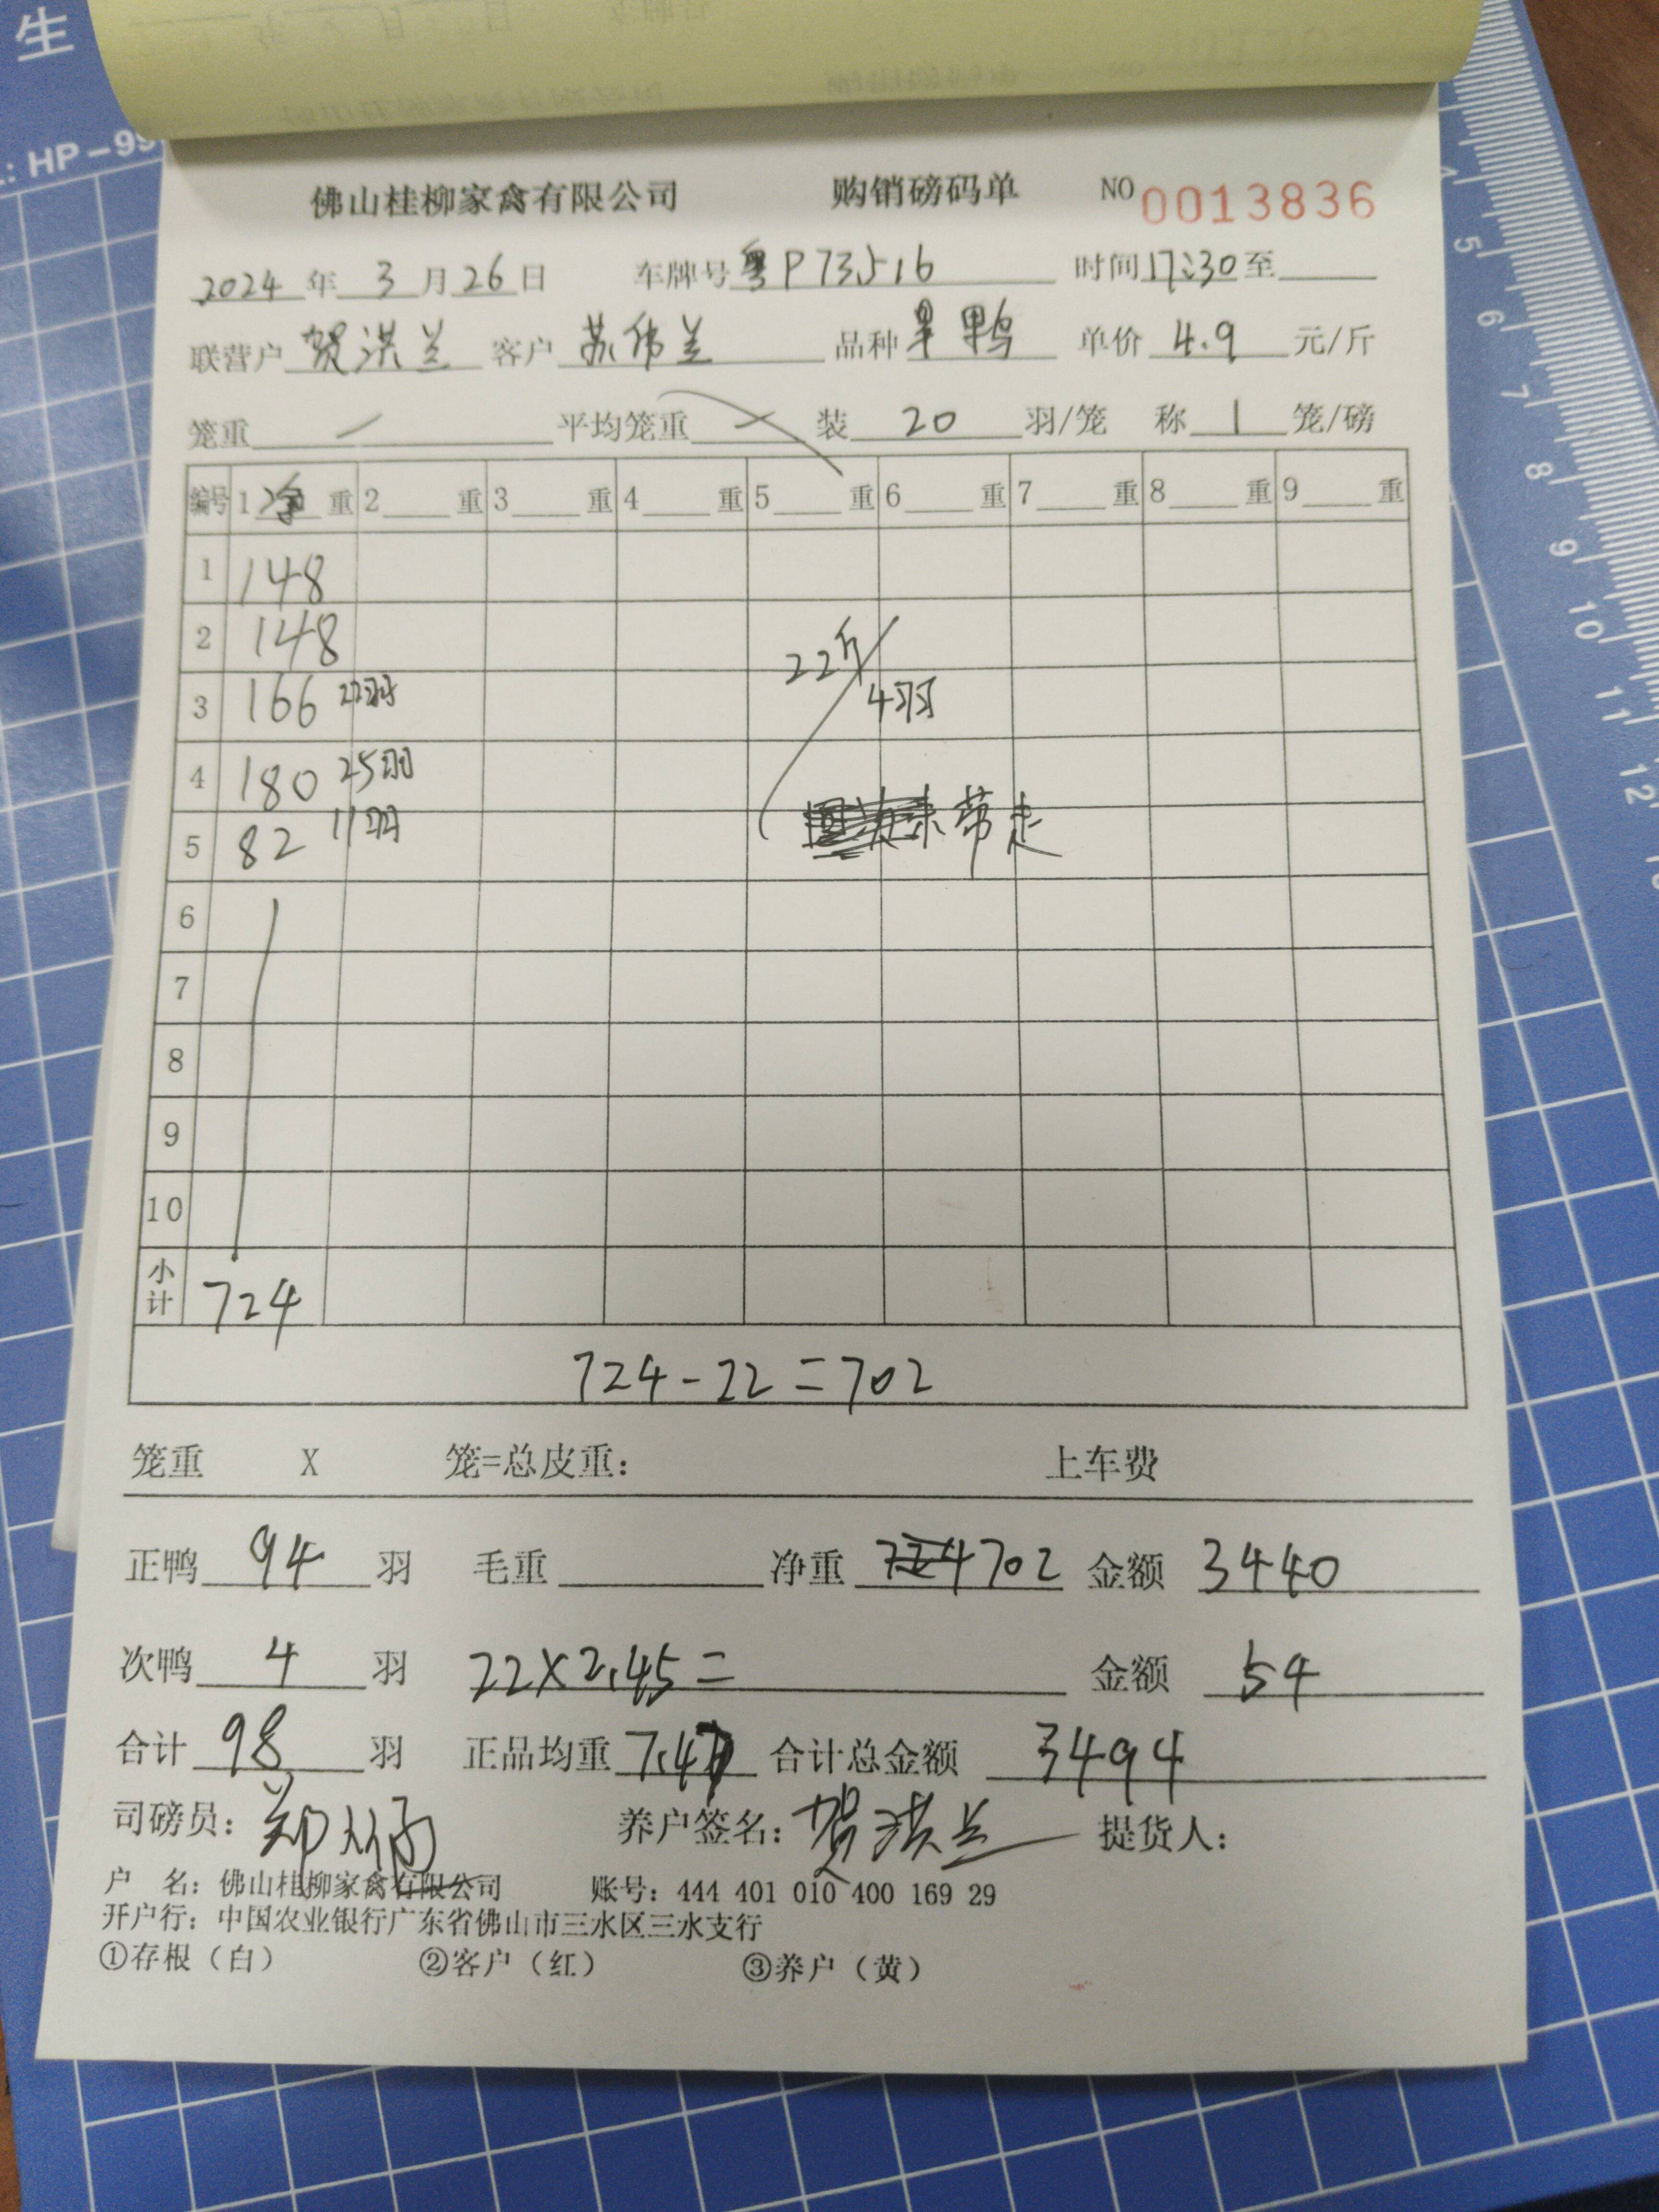 生
HP-99
佛山桂柳家禽有限公司 购销磅码单 NO 0013836
2024 年 3 月 26 日 车牌号 粤P73516 时间 17:30 至
联营户 贺洪兰 客户 苏伟兰 品种 单价 4.9 元/斤
笼重 平均笼重 装 20 羽/笼 称 1 笼/磅
编号 1 净 重 2 重 3 重 4 重 5 重 6 重 7 重 8 重 9 重
1 148
2 148 22斤
3 166 22羽 4羽
4 180 25羽
5 82 11羽 带走
6
7
8
9
10
小计 724
724-22=702
笼重 X 笼=总皮重： 上车费
正鸭 94 羽 毛重 净重 724 702 金额 3440
次鸭 4 羽 22×2.45= 金额 54
合计 98 羽 正品均重 7.47 合计总金额 3494
司磅员： 养户签名：贺洪兰 提货人：
户 名：佛山桂柳家禽有限公司 账号：444 401 010 400 169 29
开户行：中国农业银行广东省佛山市三水区三水支行
①存根（白） ②客户（红） ③养户（黄）
4
5
6
7
8
9
10
11
12